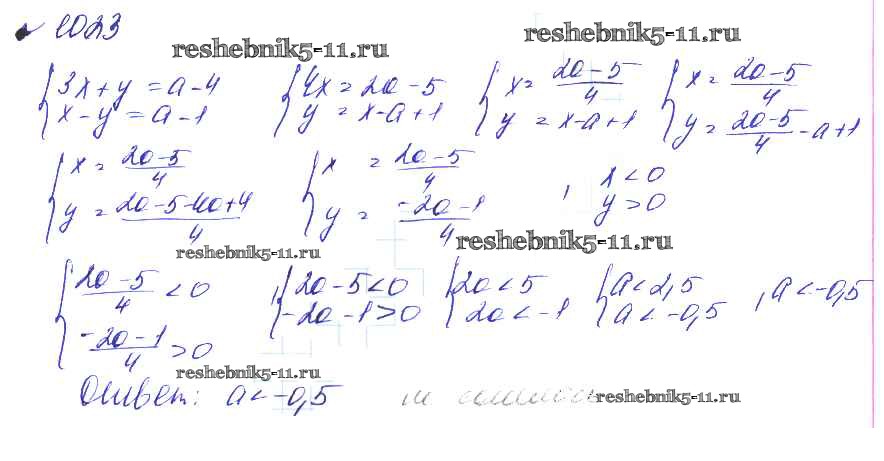 1023
reshebnik5-11.ru reshebnik5-11.ru
{3x+y=a-4 x-y=a-1 {4x=2a-5 y=x-a+1 {x=(2a-5)/4 y=x-a+1 {x=(2a-5)/4 y=(2a-5)/4-a+1
{x=(2a-5)/4 y=(2a-5-4a+4)/4 {x=(2a-5)/4 y=(-2a-1)/4 , x<0 y>0
reshebnik5-11.ru reshebnik5-11.ru
{(2a-5)/4<0 (-2a-1)/4>0 , {2a-5<0 -2a-1>0 {2a<5 2a<-1 {a<2,5 a<-0,5 , a<-0,5
reshebnik5-11.ru
Ответ: a<-0,5 reshebnik5-11.ru